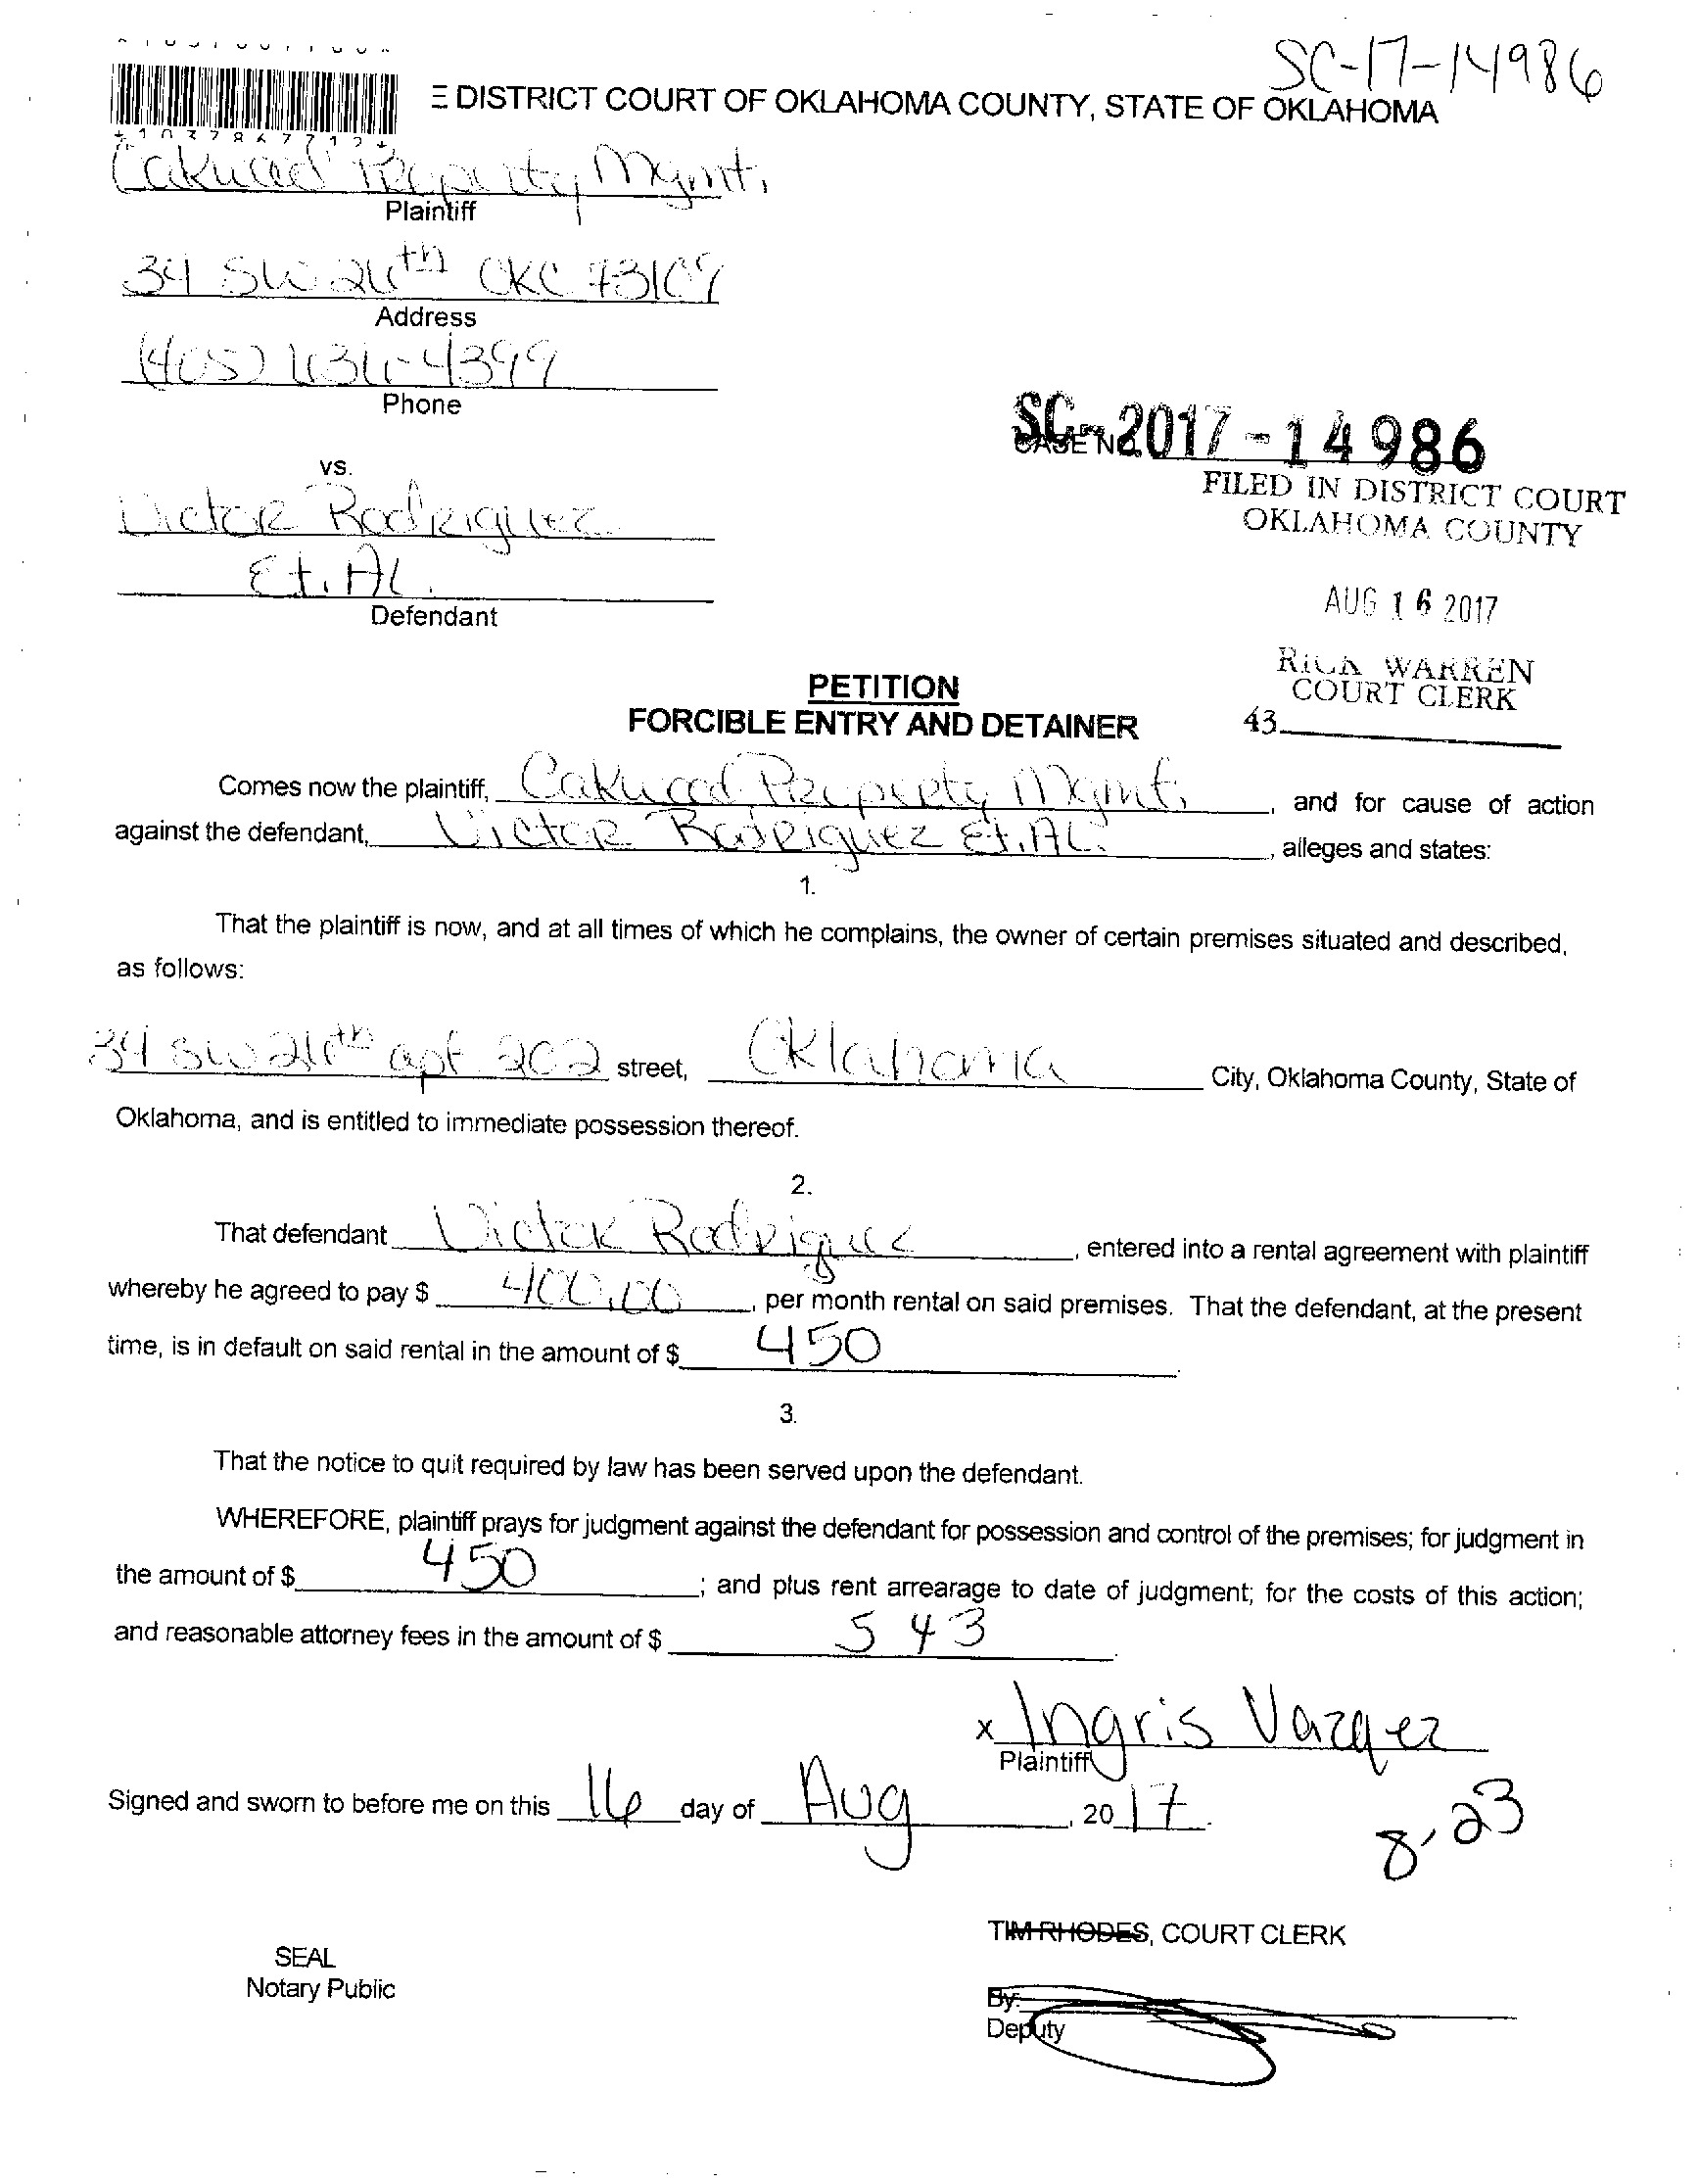 SC-17-14986
E DISTRICT COURT OF OKLAHOMA COUNTY, STATE OF OKLAHOMA
Oakwood Property Mgmt.
Plaintiff
34 SW 26th OKC 73109
Address
(405) 636-4399
Phone
SC-2017-14986
CASE NO.
vs.
FILED IN DISTRICT COURT
OKLAHOMA COUNTY
Victor Rodriguez
Et. Al.
Defendant
AUG 16 2017
RICK WARREN
COURT CLERK
43
PETITION
FORCIBLE ENTRY AND DETAINER
Comes now the plaintiff, Oakwood Property Mgmt. , and for cause of action
against the defendant, Victor Rodriguez Et. Al. , alleges and states:
1.
That the plaintiff is now, and at all times of which he complains, the owner of certain premises situated and described,
as follows:
34 SW 26th apt 202 street, Oklahoma City, Oklahoma County, State of
Oklahoma, and is entitled to immediate possession thereof.
2.
That defendant Victor Rodriguez , entered into a rental agreement with plaintiff
whereby he agreed to pay $ 400.00 , per month rental on said premises. That the defendant, at the present
time, is in default on said rental in the amount of $ 450 .
3.
That the notice to quit required by law has been served upon the defendant.
WHEREFORE, plaintiff prays for judgment against the defendant for possession and control of the premises; for judgment in
the amount of $ 450 ; and plus rent arrearage to date of judgment; for the costs of this action;
and reasonable attorney fees in the amount of $ 543 .
x Ingris Vazquez
Plaintiff
Signed and sworn to before me on this 16 day of Aug , 2017.
8-23
TIM RHODES, COURT CLERK
SEAL
Notary Public
By:
Deputy